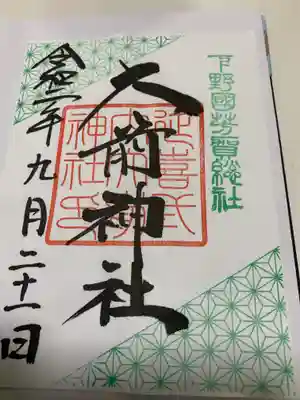 下野國芳賀総社
大前神社
延喜式内大前神社印
令和二年九月二十一日